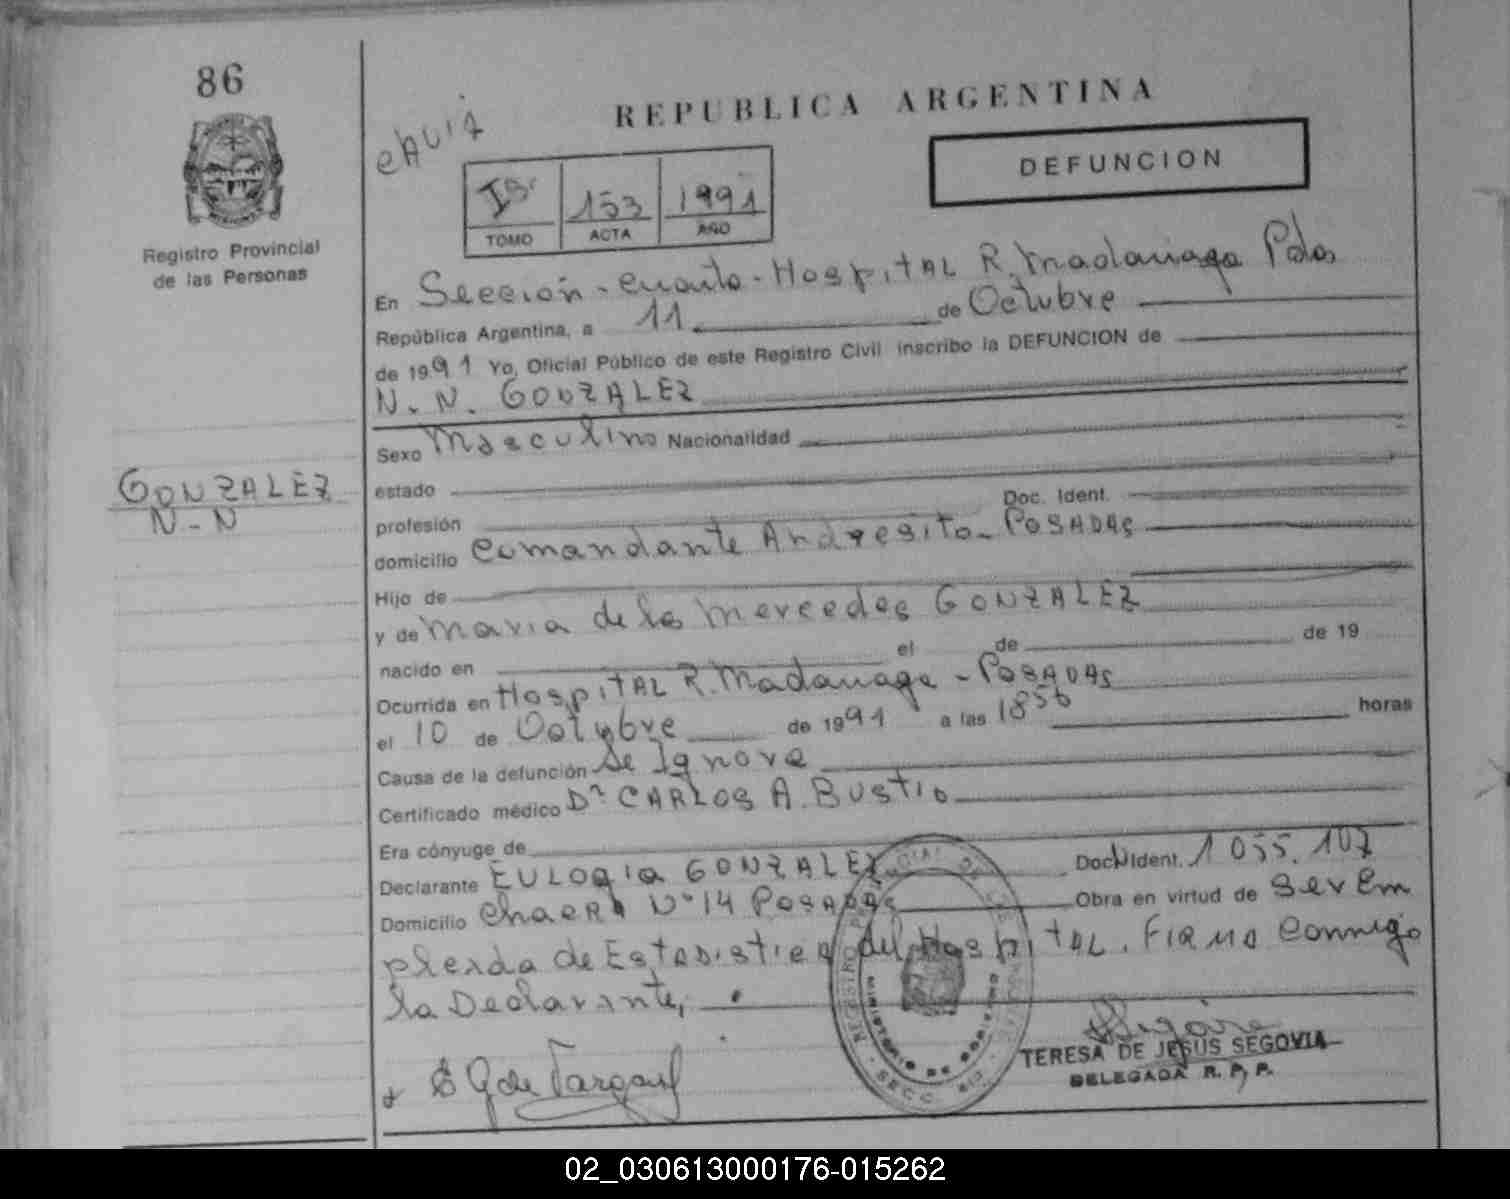 86
REPUBLICA ARGENTINA
DEFUNCION
153 1991
TOMO ACTA AÑO
Registro Provincial
de las Personas
En Sección - cuarta - Hospital R. Madariaga Pdas
República Argentina, a 11 de Octubre
de 1991 Yo, Oficial Público de este Registro Civil inscribo la DEFUNCION de
N. N. GONZALEZ
Sexo Masculino Nacionalidad
GONZALEZ
N-N
estado
Doc. Ident.
profesión
domicilio Comandante Andresito - POSADAS
Hijo de
y de Maria de las Mercedes GONZALEZ
nacido en el de de 19
Ocurrida en Hospital R. Madariaga - POSADAS
el 10 de Octubre de 1991 a las 1856 horas
Causa de la defunción Se Ignora
Certificado médico Dr CARLOS A. BUSTIO
Era cónyuge de
Declarante EULOGIA GONZALEZ Doc. Ident. 1 055.107
Domicilio Chacra N° 14 POSADAS Obra en virtud de Ser Em
pleada de Estadistica del Hospital. Firma Conmigo
la Declarante,
E G de
TERESA DE JESUS SEGOVIA
DELEGADA R. P. P.
MINISTERIO DE GOBIERNO
02_030613000176-015262